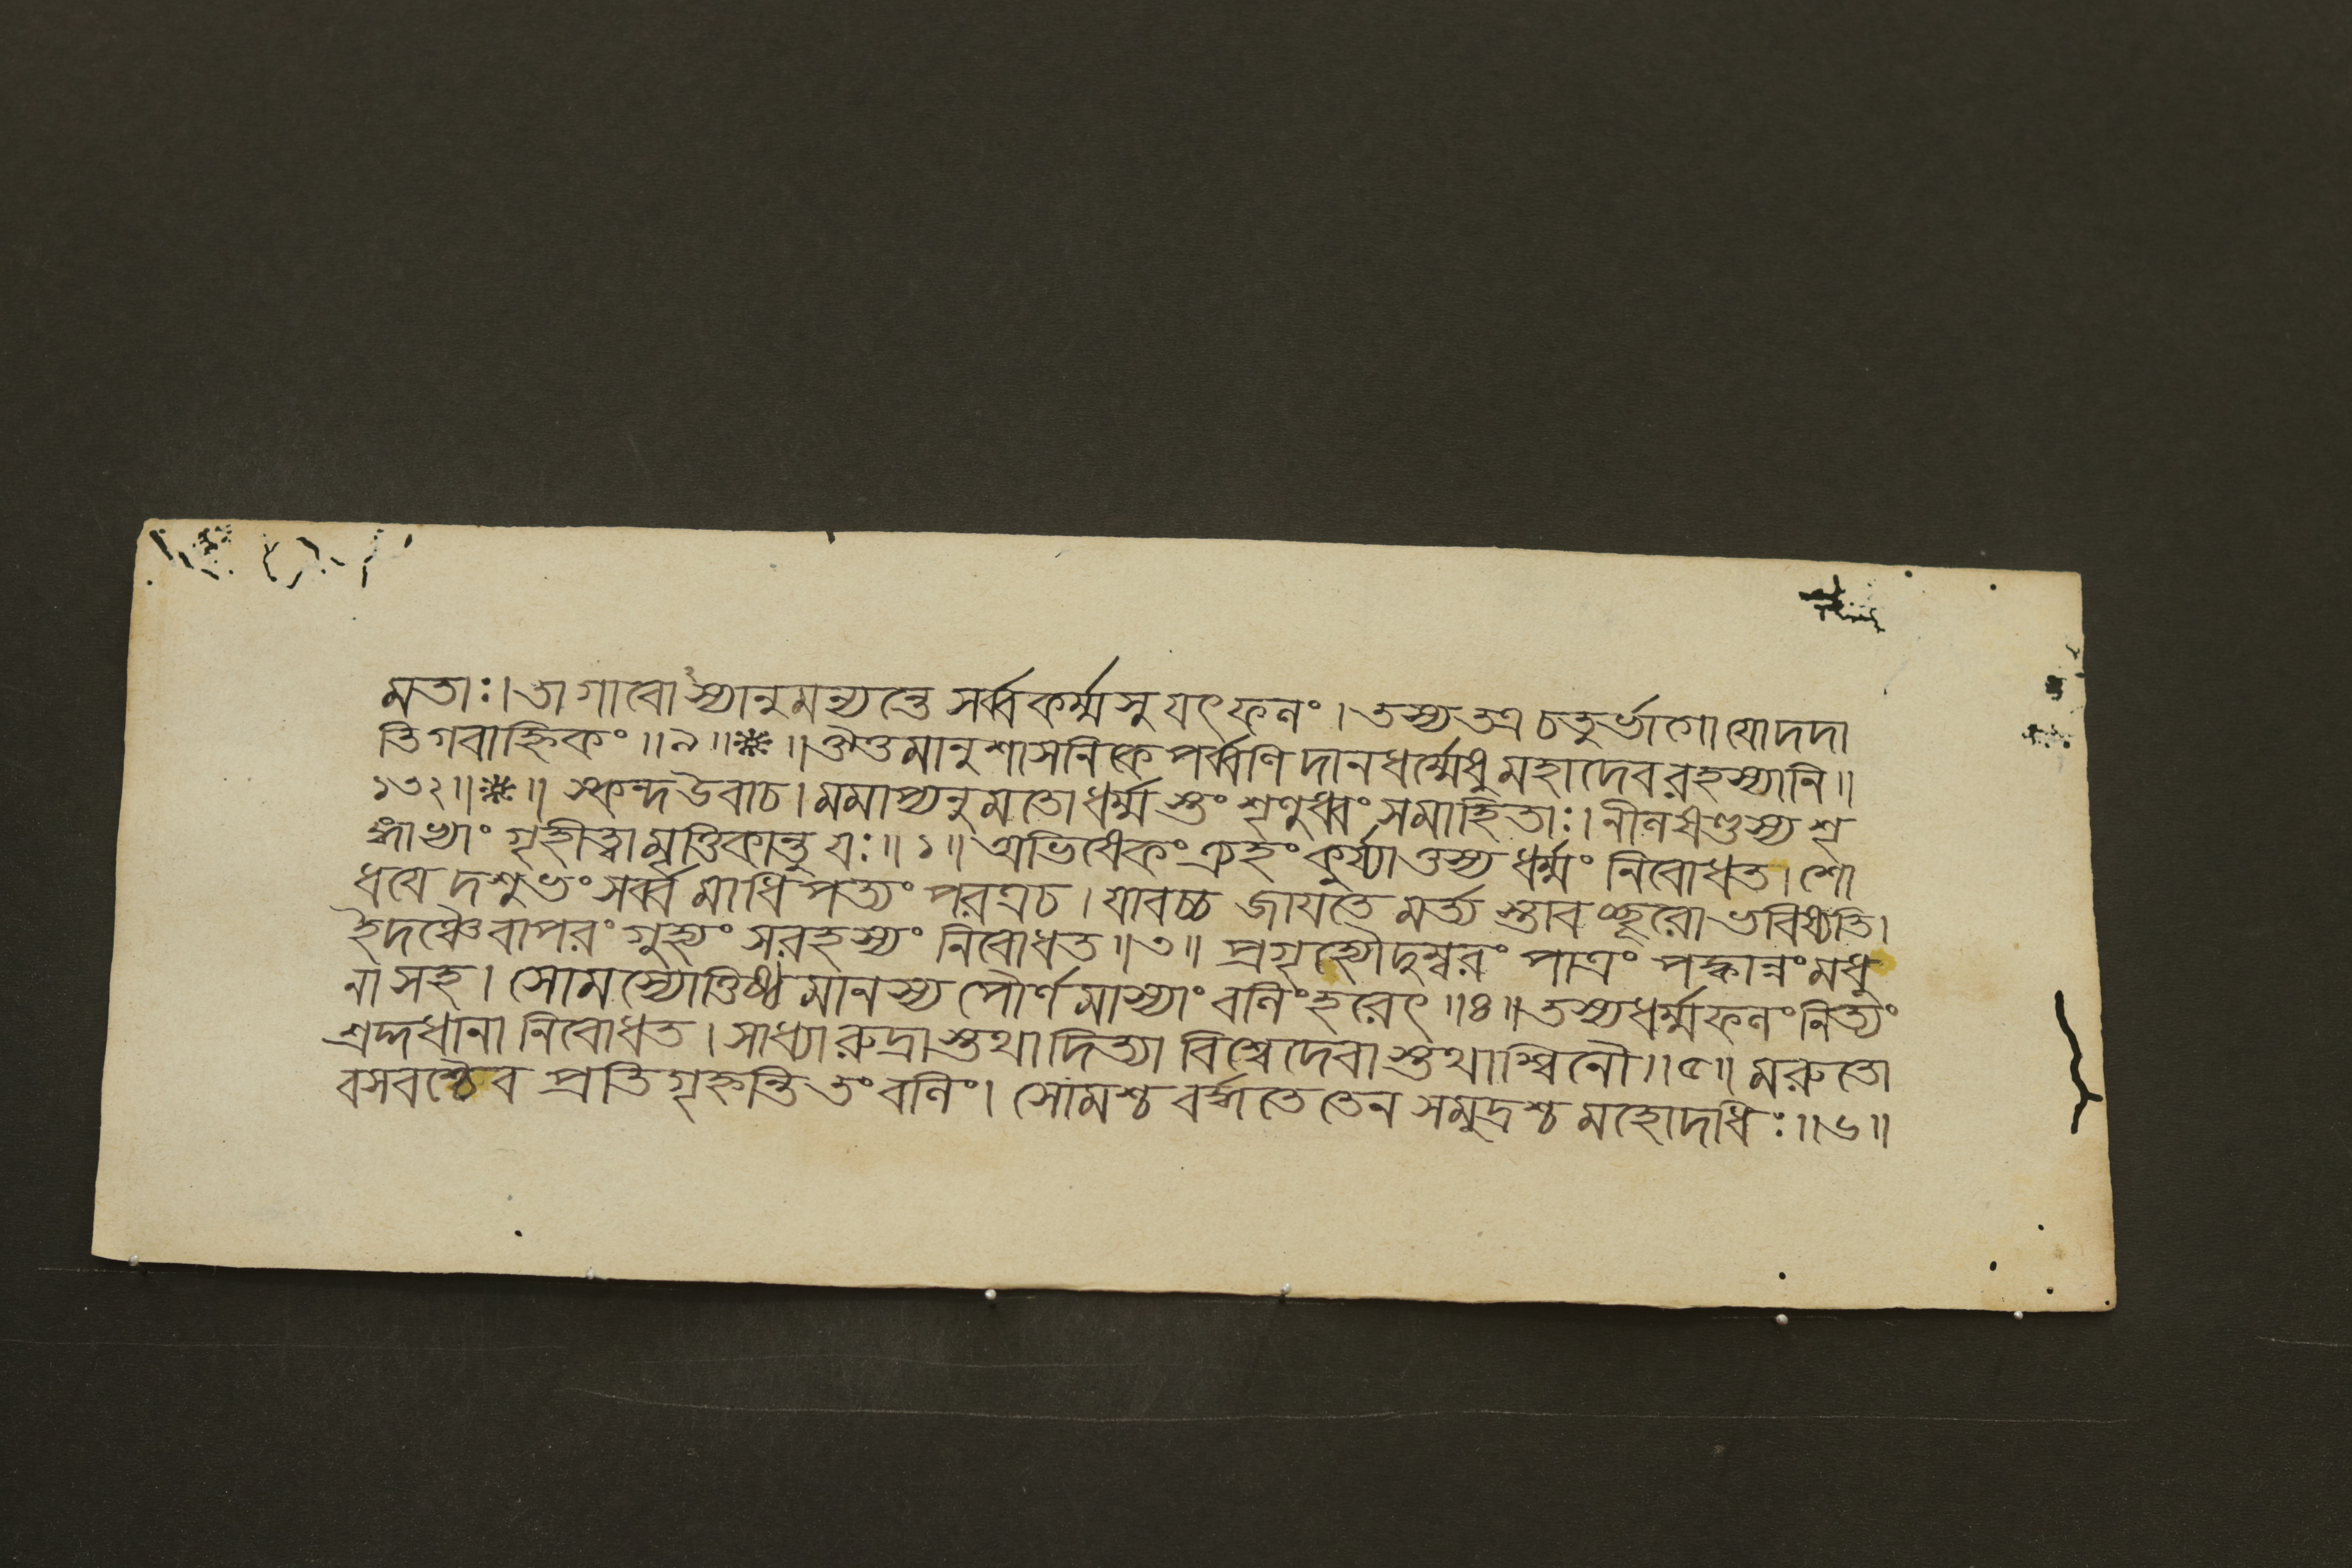 মতাঃ। তা গাবোস্যানুমন্যন্তে সর্ব্বকর্ম্মসু যৎফলং। তস্য তত্র চতুর্ভাগো যোদদা
তি গবাহ্নিকং॥৯॥❋॥ ঔত্তমানুশাসনিকে পর্ব্বণি দানধর্ম্মেষু মহাদেবরহস্যানি॥
১৩২॥❋॥ স্কন্দ উবাচ। মমাপ্যনুমতো ধর্ম্মস্তং শৃণুধ্বং সমাহিতাঃ। নীলষণ্ডস্য শৃ
ঙ্গাভ্যাং গৃহীত্বা মৃত্তিকান্তু যঃ॥১॥ অভিষেকং ত্র্যহং কুর্য্যাত্তস্য ধর্ম্মং নিবোধত। শো
ধযে দশুভং সর্ব্বমাধিপত্যং পরত্রচ। যাবচ্চ জাযতে মর্ত্য স্তাবচ্ছূরো ভবিষ্যতি।
ইদঞ্চৈবাপরং গুহ্যং সরহস্যং নিবোধত॥৩॥ প্রগৃহ্যৌদুম্বরং পাত্রং পক্কান্নং মধু
না সহ। সোমস্যোত্তিষ্ঠমানস্য পৌর্ণমাস্যাং বলিং হরেৎ॥৪॥ তস্যধর্ম্মফলং নিত্যং
শ্রদ্দধানা নিবোধত। সাধ্যারুদ্রাস্তথাদিত্যা বিশ্বেদেবাস্তথাশ্বিনৌ॥৫॥ মরুতো
বসবশ্চৈব প্রতিগৃহ্নন্তি তং বলিং। সোমশ্চ বর্দ্ধতে তেন সমুদ্রশ্চ মহোদধিঃ॥৬॥